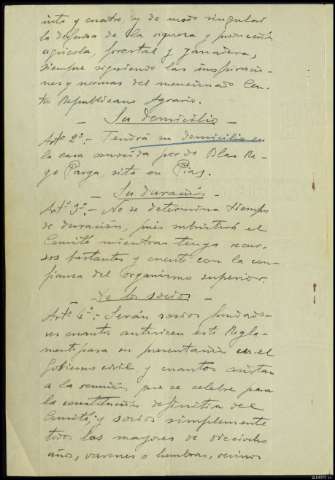 inte y cuatro y de modo singular
la defensa de la riqueza y producción
agrícola, forestal y ganadera,
siempre siguiendo las inspiracio-
nes y normas del mencionado Cen-
tro Republicano Agrario.
— Su domicilio —
Artº 2º.- Tendrá su domicilio en
la casa movida por do Blas Re-
go Parga, sita en Pias.
— Su duración —
Artº 3º.- No se determina tiempo
de duración, pues subsistirá el
Comité mientras tenga recur-
sos bastantes y cuente con la con-
fianza del Organismo superior.
— De los socios —
Artº 4º.- Serán socios fundado-
res cuantos autoricen este Regla-
mento para su presentación en el
Gobierno civil y cuantos asistan
a la reunión que se celebre para
la constitución definitiva del
Comité; y socios simplemente
todos los mayores de dieciocho
años, varones o hembras, vecinos